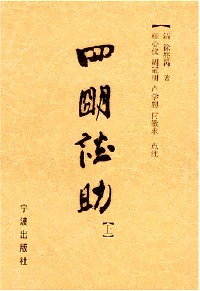 [清] 徐兆昺 著
桂心仪 周冠明 卢学恕 何敏求 点注
四明談助
[上]
宁波出版社